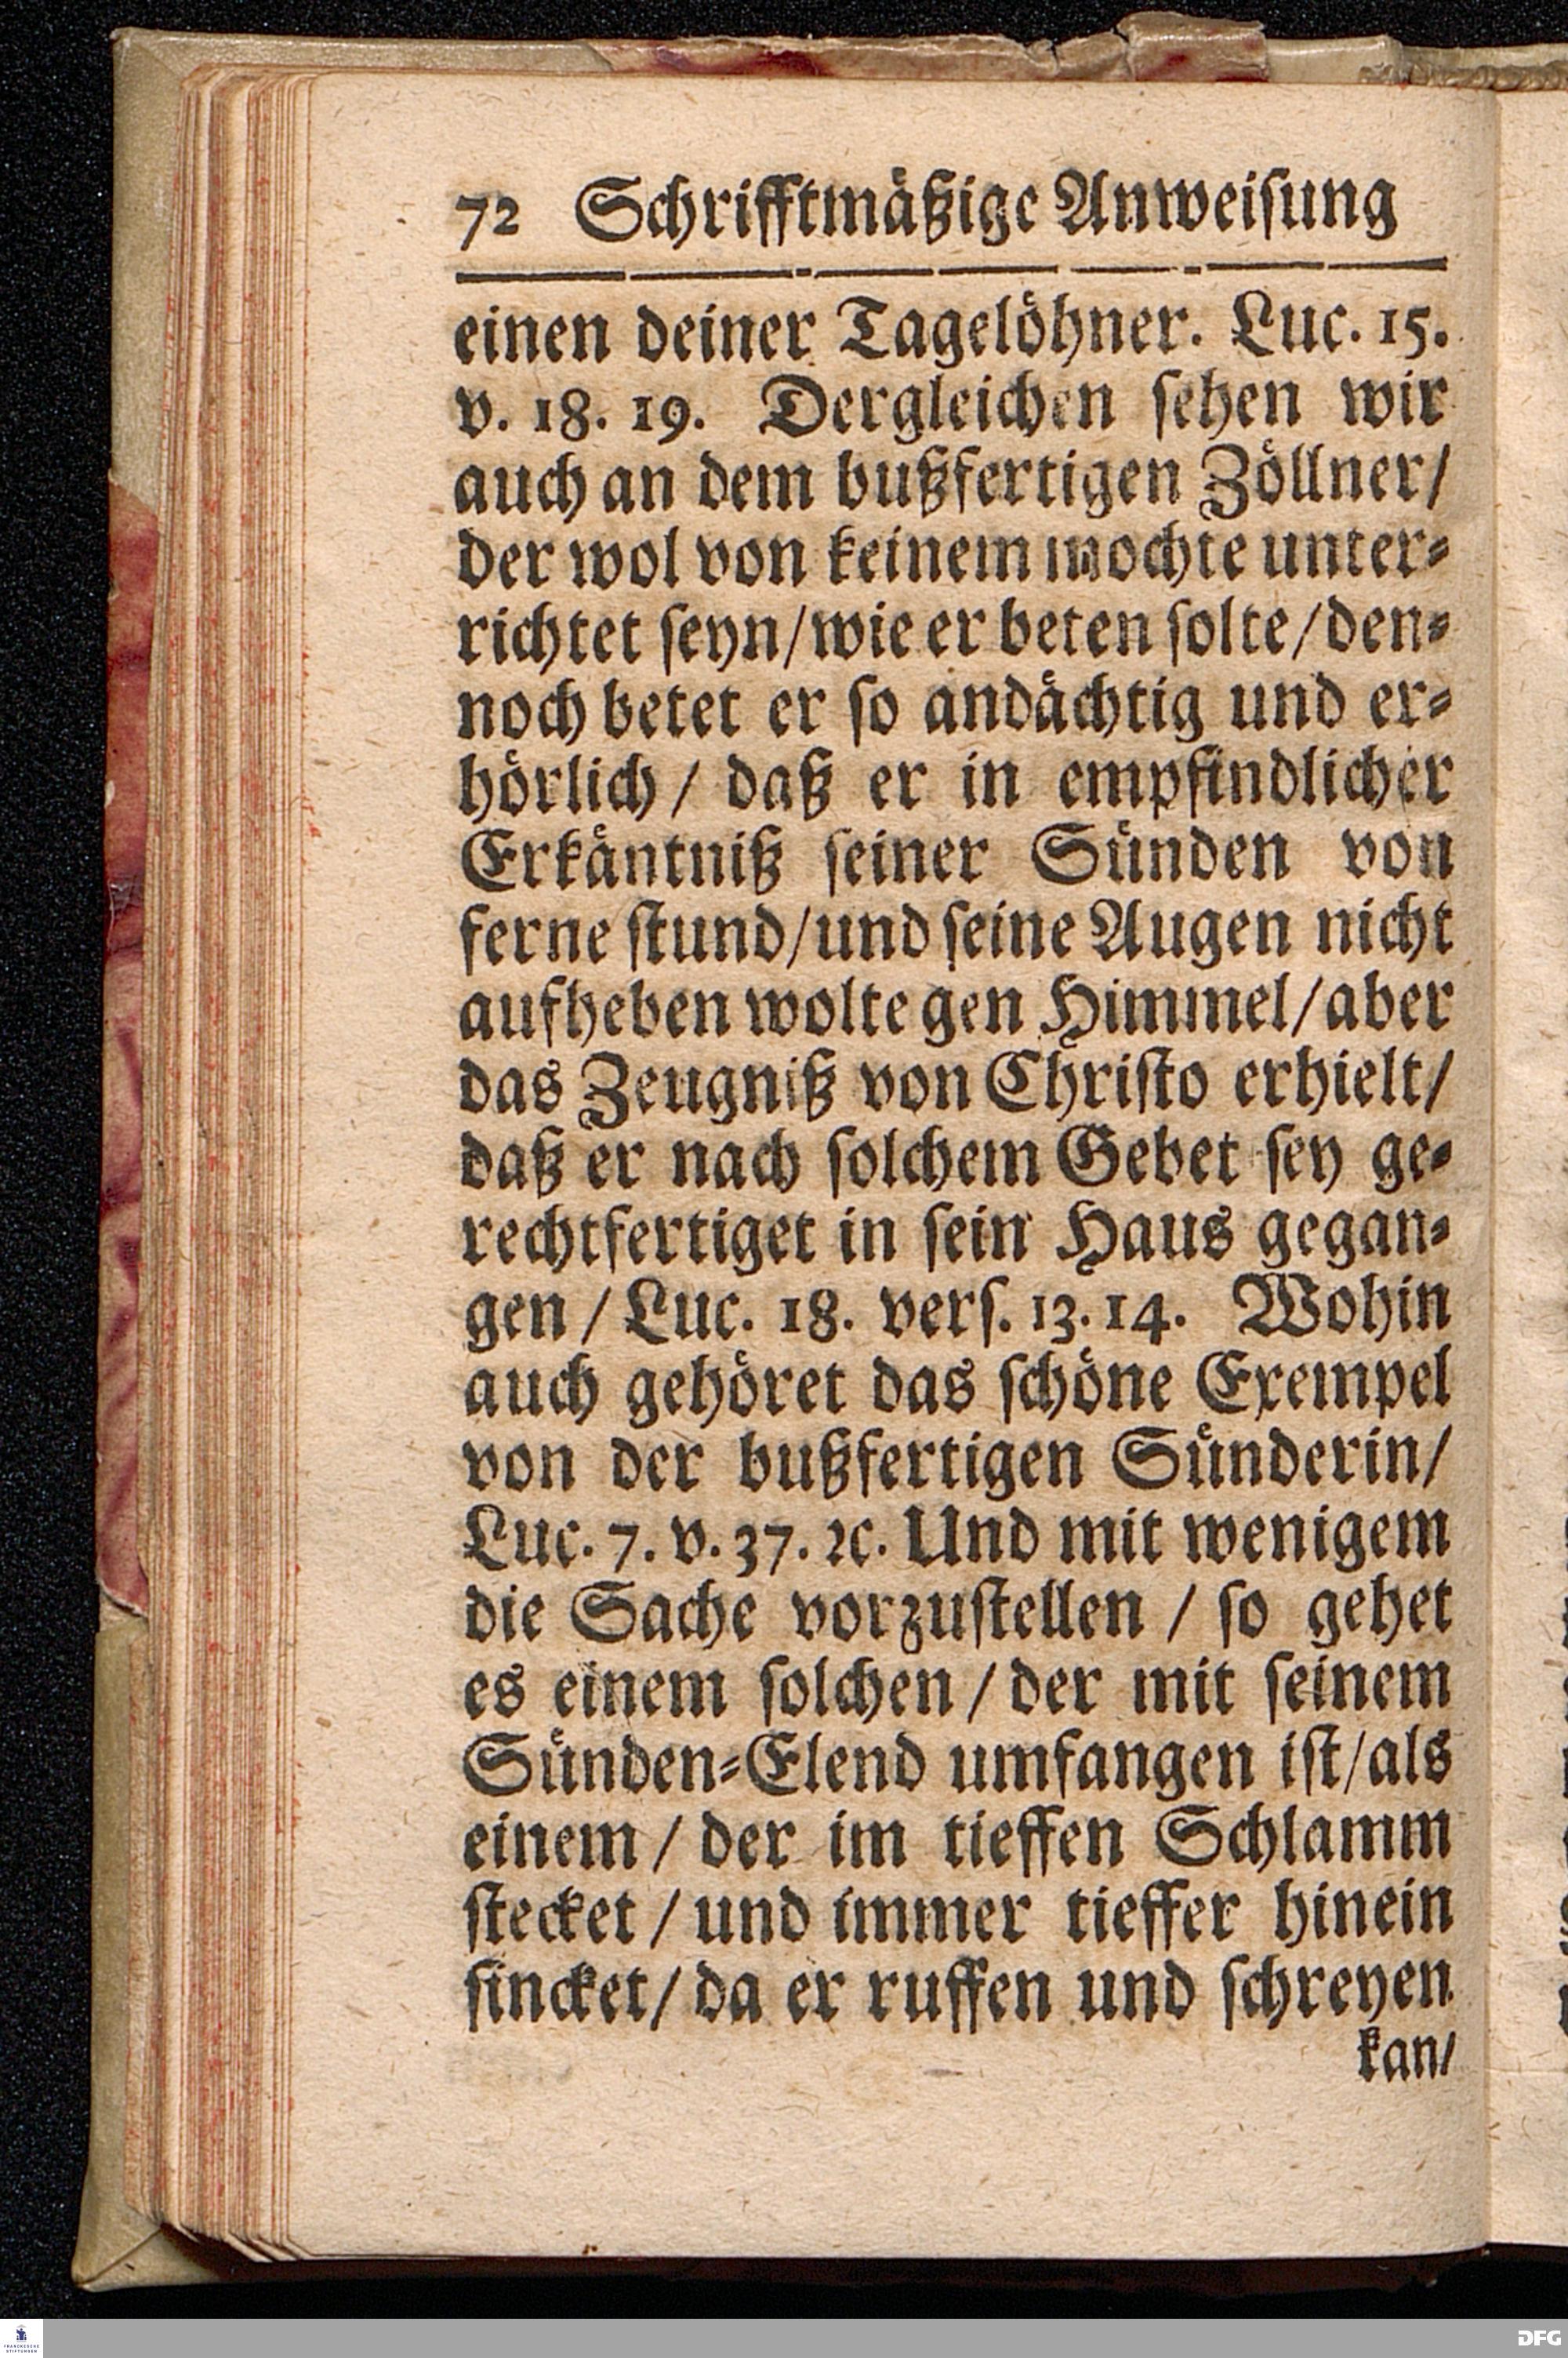 72 Schrifftmäßige Anweiſung
einen deiner Tagelöhner. Luc. 15.
v. 18. 19. Dergleichen ſehen wir
auch an dem bußfertigen Zöllner/
der wol von keinem mochte unter⸗
richtet ſeyn/wie er beten ſolte/den⸗
noch betet er ſo andächtig und er⸗
hörlich/ daß er in empfindlicher
Erkäntniß ſeiner Sünden von
ferne ſtund/und ſeine Augen nicht
aufheben wolte gen Himmel/aber
das Zeugniß von Chriſto erhielt/
daß er nach ſolchem Gebet ſey ge⸗
rechtfertiget in ſein Haus gegan⸗
gen/ Luc. 18. verſ. 13. 14. Wohin
auch gehöret das ſchöne Exempel
von der bußfertigen Sünderin/
Luc. 7. v. 37. ꝛc. Und mit wenigem
die Sache vorzuſtellen / ſo gehet
es einem ſolchen / der mit ſeinem
Sünden⸗Elend umfangen iſt/als
einem / der im tieffen Schlamm
ſtecket / und immer tieffer hinein
ſincket/ da er ruffen und ſchreyen
kan/
FRANCKESCHE
STIFTUNGEN
DFG